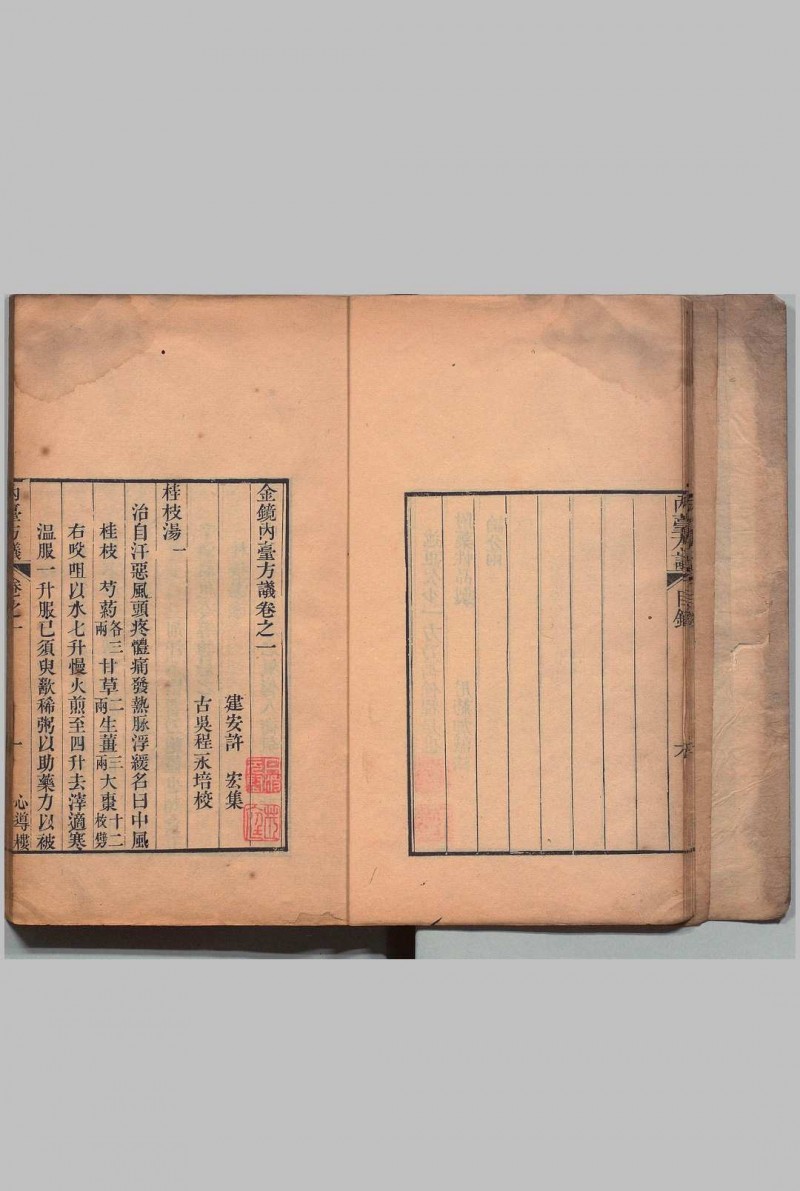 內臺方議 目錄
金鏡內臺方議卷之一
建安許 宏集
古吳程永培校
桂枝湯一
治自汗惡風頭疼體痛發熱脉浮緩名曰中風
桂枝 芍藥各三兩 甘草二兩 生薑三兩 大棗十二枚劈
右㕮咀以水七升慢火煎至四升去滓適寒
溫服一升服已須臾歠稀粥以助藥力以被
內臺方議 卷之一 一 心導樓